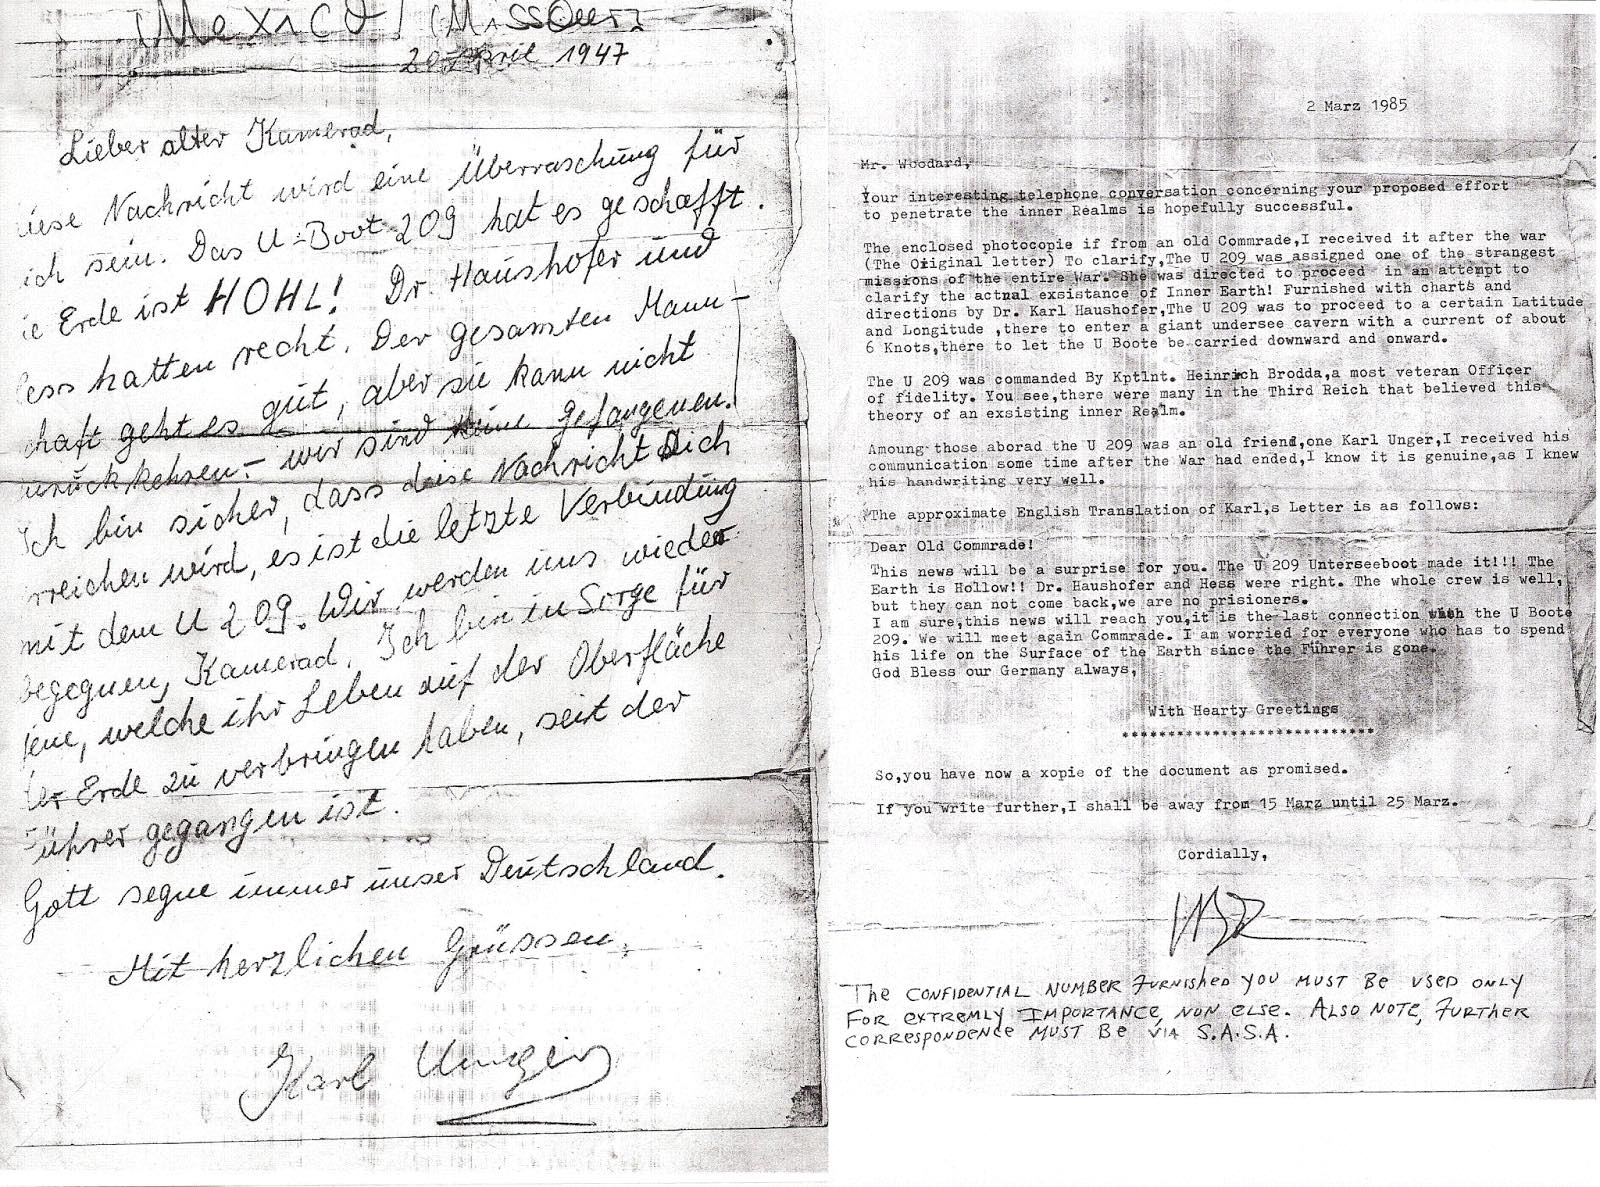 Mexico / (Missouri
20 April 1947
Lieber alter Kamerad,
iese Nachricht wird eine Überraschung für
ich sein. Das U-Boot 209 hat es geschafft.
ie Erde ist HOHL! Dr Haushofer und
ess hatten recht. Der gesamten Mann-
chaft geht es gut, aber sie kann nicht
urückkehren. – wir sind keine Gefangenen.
Ich bin sicher, dass diese Nachricht Dich
rreichen wird, es ist die letzte Verbindung
mit dem U 209. Wir werden uns wieder
begegnen, Kamerad. Ich bin in Sorge für
jene, welche ihr Leben auf der Oberfläche
der Erde zu verbringen haben, seit der
Führer gegangen ist.
Gott segne immer unser Deutschland.
Mit herzlichen Grüssen,
Karl Unger
2 Marz 1985
Mr. Woodard,
Your interesting telephone conversation concerning your proposed effort
to penetrate the inner Realms is hopefully successful.
The enclosed photocopie if from an old Commrade,I received it after the war
(The Original letter) To clarify,The U 209 was assigned one of the strangest
missions of the entire War. She was directed to proceed in an attempt to
clarify the actual exsistance of Inner Earth! Furnished with charts and
directions by Dr. Karl Haushofer,The U 209 was to proceed to a certain Latitude
and Longitude ,there to enter a giant undersee cavern with a current of about
6 Knots,there to let the U Boote be carried downward and onward.
The U 209 was commanded By Kptlnt. Heinrich Brodda,a most veteran Officer
of fidelity. You see,there were many in the Third Reich that believed this
theory of an exsisting inner Realm.
Amoung those aborad the U 209 was an old friend,one Karl Unger,I received his
communication some time after the War had ended,I know it is genuine,as I knew
his handwriting very well.
The approximate English Translation of Karl,s Letter is as follows:
Dear Old Commrade!
This news will be a surprise for you. The U 209 Unterseeboot made it!!! The
Earth is Hollow!! Dr. Haushofer and Hess were right. The whole crew is well,
but they can not come back,we are no prisioners.
I am sure,this news will reach you,it is the last connection with the U Boote
209. We will meet again Commrade. I am worried for everyone who has to spend
his life on the Surface of the Earth since the Führer is gone.
God Bless our Germany always,
With Hearty Greetings
****************************
So,you have now a xopie of the document as promised.
If you write further,I shall be away from 15 Marz until 25 Marz.
Cordially,
THE CONFIDENTIAL NUMBER FURNISHED YOU MUST BE USED ONLY
FOR EXTREMLY IMPORTANCE, NON ELSE. ALSO NOTE, FURTHER
CORRESPONDENCE MUST BE VIA S.A.S.A.